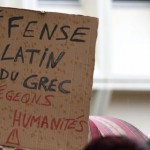 ÉFENSE
LATIN
DU GREC
ÉGEONS
HUMANITÉS